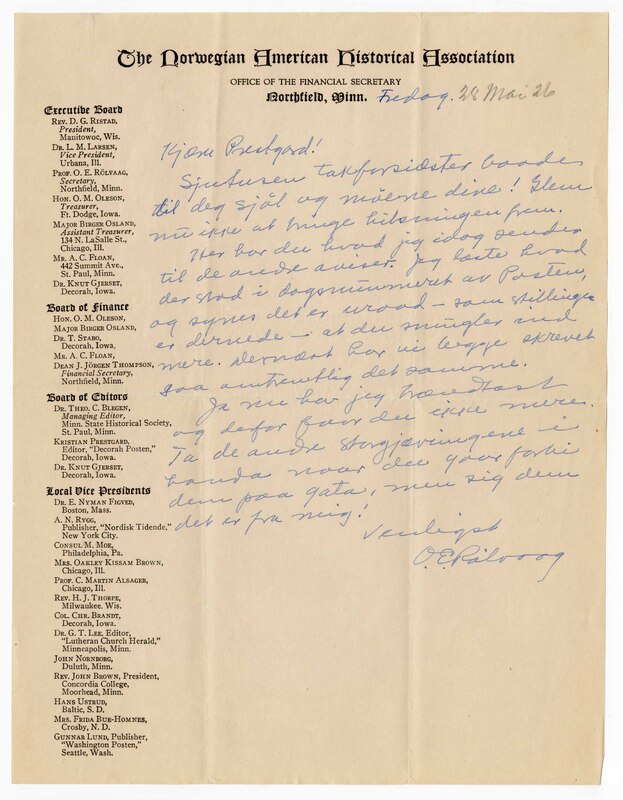 The Norwegian American Historical Association
OFFICE OF THE FINANCIAL SECRETARY
Northfield, Minn. Fredag. 28 Mai 26
Executive Board
REV. D. G. RISTAD,
President,
Manitowoc, Wis.
DR. L. M. LARSEN,
Vice President,
Urbana, Ill.
PROF. O. E. RÖLVAAG,
Secretary,
Northfield, Minn.
HON. O. M. OLESON,
Treasurer,
Ft. Dodge, Iowa.
MAJOR BIRGER OSLAND,
Assistant Treasurer,
134 N. LaSalle St.,
Chicago, Ill.
MR. A. C. FLOAN,
442 Summit Ave.,
St. Paul, Minn.
DR. KNUT GJERSET,
Decorah, Iowa.
Board of Finance
HON. O. M. OLESON,
MAJOR BIRGER OSLAND,
DR. T. STABO,
Decorah, Iowa.
MR. A. C. FLOAN,
DEAN J. JÖRGEN THOMPSON,
Financial Secretary,
Northfield, Minn.
Board of Editors
DR. THEO. C. BLEGEN,
Managing Editor,
Minn. State Historical Society,
St. Paul, Minn.
KRISTIAN PRESTGARD,
Editor, "Decorah Posten,"
Decorah, Iowa.
DR. KNUT GJERSET,
Decorah, Iowa.
Local Vice Presidents
DR. E. NYMAN FIGVED,
Boston, Mass.
A. N. RYGG,
Publisher, "Nordisk Tidende,"
New York City.
CONSUL M. MOE,
Philadelphia, Pa.
MRS. OAKLEY KISSAM BROWN,
Chicago, Ill.
PROF. C. MARTIN ALSAGER,
Chicago, Ill.
REV. H. J. THORPE,
Milwaukee. Wis.
COL. CHR. BRANDT,
Decorah, Iowa.
DR. G. T. LEE, Editor,
"Lutheran Church Herald,"
Minneapolis, Minn.
JOHN NORNBORG,
Duluth, Minn.
REV. JOHN BROWN, President,
Concordia College,
Moorhead, Minn.
HANS USTRUD,
Baltic, S. D.
MRS. FRIDA BUE-HOMNES,
Crosby, N. D.
GUNNAR LUND, Publisher,
"Washington Posten,"
Seattle, Wash.
Kjære Prestgard!
Sjutusen takforsidster baade
til deg sjøl og møene dine! Glem
nu ikke at bringe hilsningen frem.
Her har du hvad jeg idag sender
til de andre aviser. Jeg læste hvad
der stod i dagsnummeret av Posten,
og synes det er uraad – som stillingen
er dernede – at du smugler ind
mere. Dernæst har vi begge skrevet
saa omtrentlig det samme.
Ja nu har jeg
og derfor faar du ikke mere.
Ta de andre storgjævingene i
handa naar du gaar forbi
dem paa gata, men sig dem
det er fra mig!
Venligst
O. E. Rölvaag